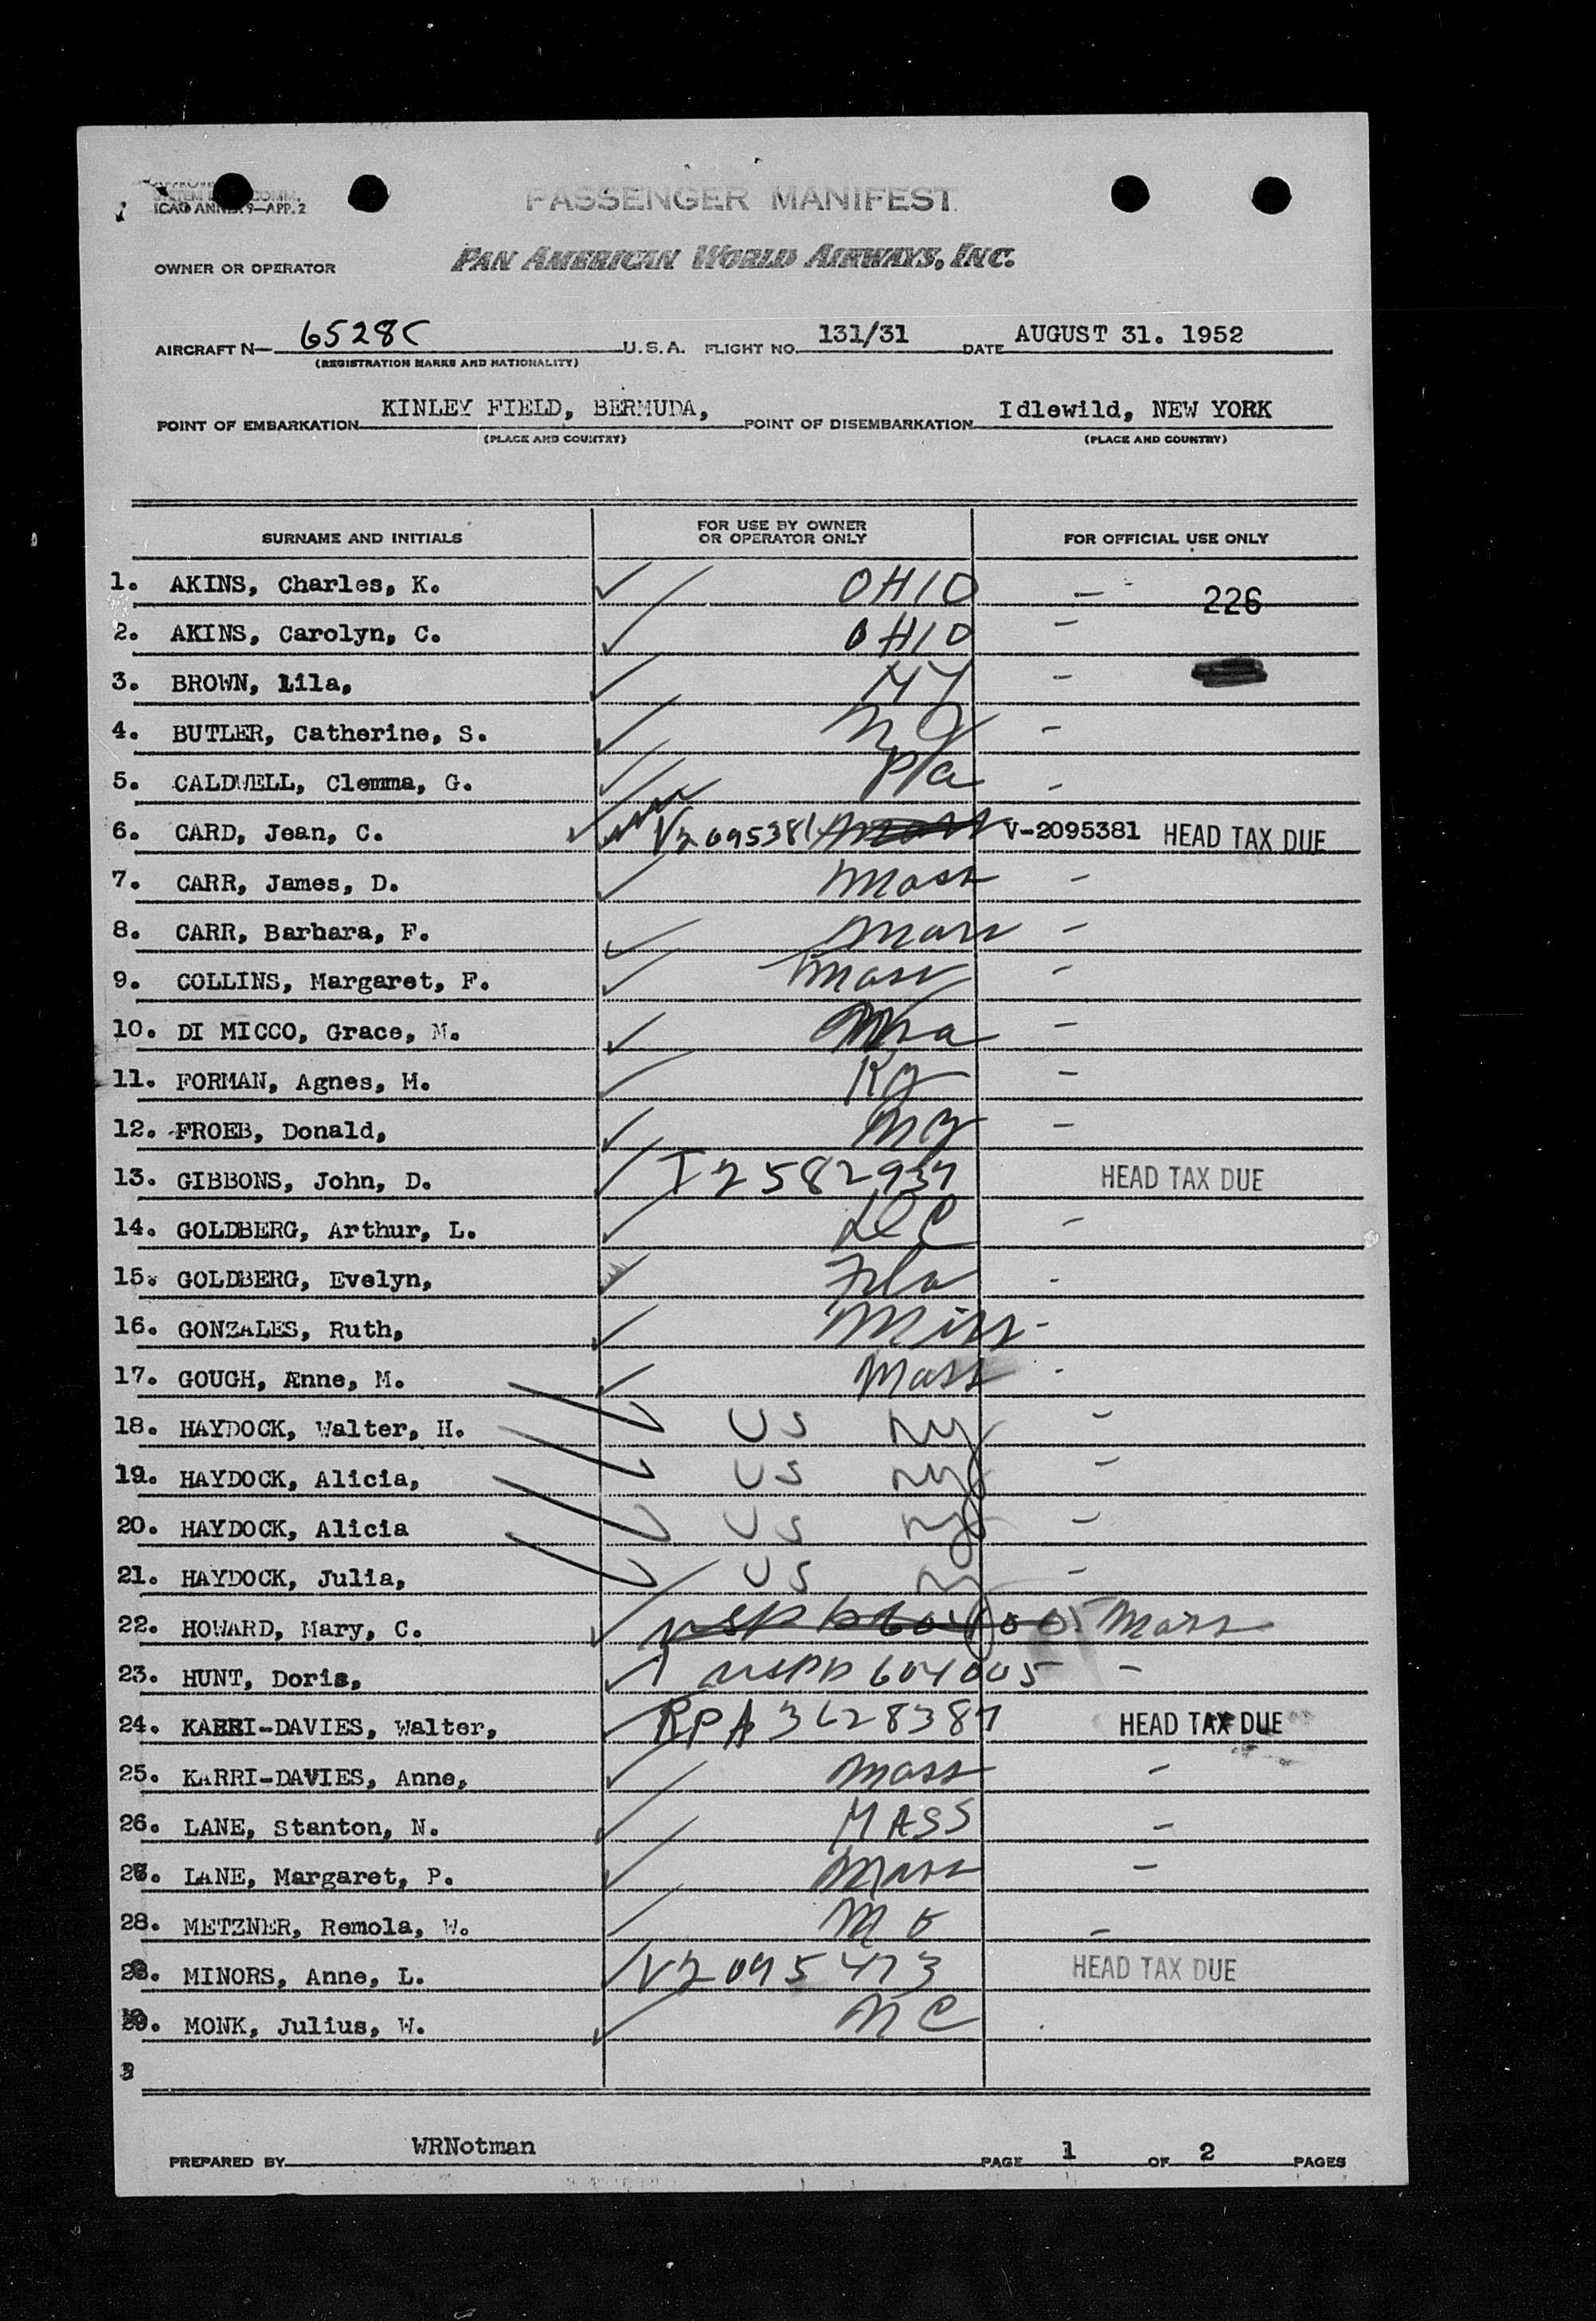 ICAO ANNEX 9—APP. 2
PASSENGER MANIFEST
OWNER OR OPERATOR PAN AMERICAN WORLD AIRWAYS, INC.
AIRCRAFT N— 6528C U.S.A. FLIGHT NO. 131/31 DATE AUGUST 31. 1952
(REGISTRATION MARKS AND NATIONALITY)
POINT OF EMBARKATION KINLEY FIELD, BERMUDA, POINT OF DISEMBARKATION Idlewild, NEW YORK
(PLACE AND COUNTRY) (PLACE AND COUNTRY)
SURNAME AND INITIALS FOR USE BY OWNER OR OPERATOR ONLY FOR OFFICIAL USE ONLY
1. AKINS, Charles, K. OHIO — 226
2. AKINS, Carolyn, C. OHIO —
3. BROWN, Lila, NY —
4. BUTLER, Catherine, S. NJ —
5. CALDWELL, Clemma, G. Pa -
6. CARD, Jean, C. V2095381 V-2095381 HEAD TAX DUE
7. CARR, James, D. Mass —
8. CARR, Barbara, F. Mass —
9. COLLINS, Margaret, F. Mass —
10. DI MICCO, Grace, M. —
11. FORMAN, Agnes, M. Ky —
12. FROEB, Donald, NY —
13. GIBBONS, John, D. I2582937 HEAD TAX DUE
14. GOLDBERG, Arthur, L. DC —
15. GOLDBERG, Evelyn, Fla -
16. GONZALES, Ruth, Miss -
17. GOUGH, Anne, M. Mass -
18. HAYDOCK, Walter, H. US NY —
19. HAYDOCK, Alicia, US NY —
20. HAYDOCK, Alicia US NY —
21. HAYDOCK, Julia, US NY —
22. HOWARD, Mary, C. Mass
23. HUNT, Doris, 604005 —
24. KARRI-DAVIES, Walter, RPA 3628387 HEAD TAX DUE
25. KARRI-DAVIES, Anne, Mass —
26. LANE, Stanton, N. MASS —
27. LANE, Margaret, P. Mass —
28. METZNER, Remola, W. Mo —
29. MINORS, Anne, L. V2095473 HEAD TAX DUE
30. MONK, Julius, W. NC
PREPARED BY WRNotman PAGE 1 OF 2 PAGES